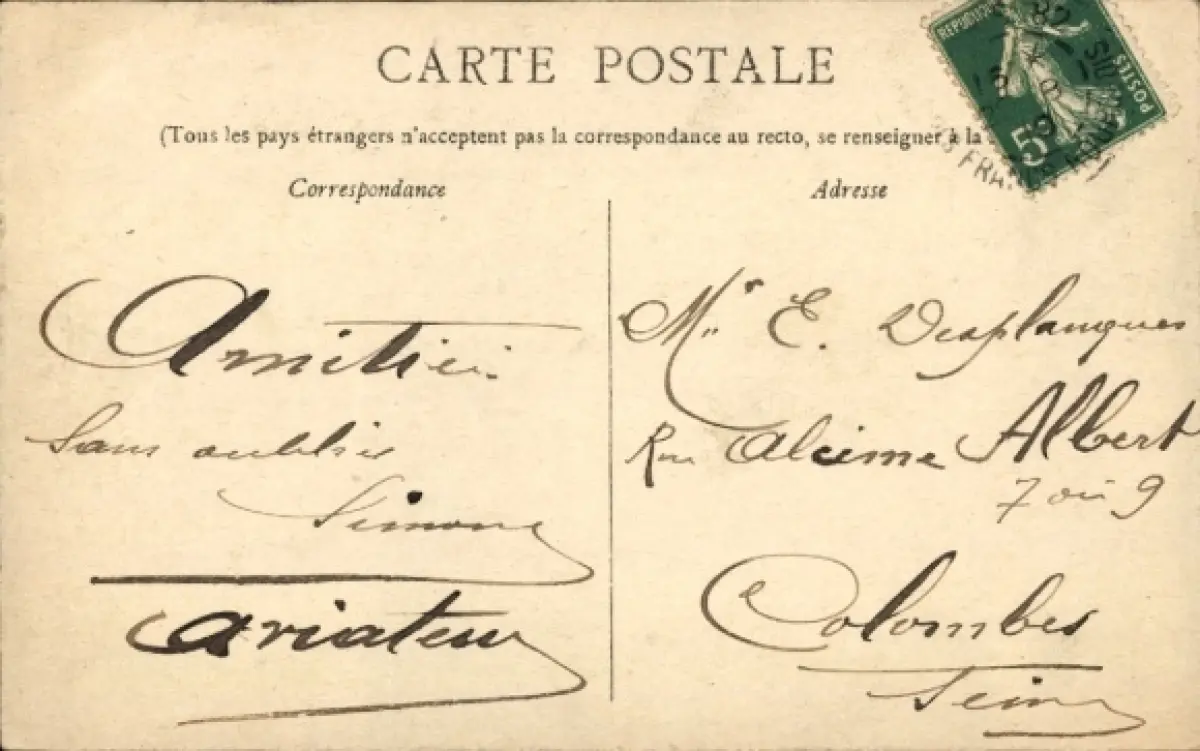 CARTE POSTALE
(Tous les pays étrangers n'acceptent pas la correspondance au recto, se renseigner à la
Correspondance
Amitiés
Sans oublier
Simone
aviateur
Adresse
Mr E. Desplanques
Rue Alcime Albert
7 ou 9
Colombes
Seine
REPUBLIQUE
POSTES
5